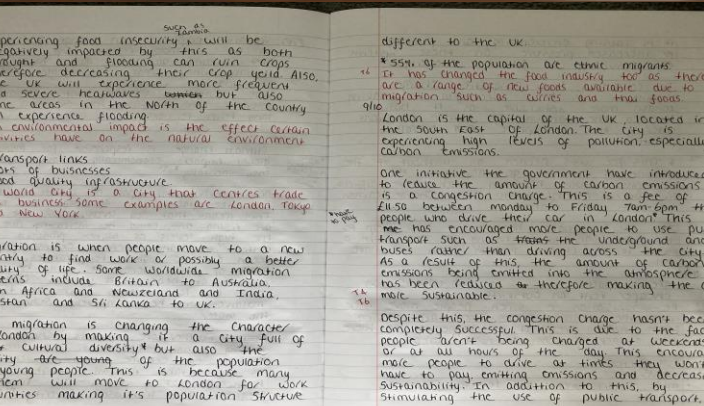 such as
Zambia
periencing food insecurity, will be
egatively impacted by this as both
rought and flooding can ruin crops
erefore decreasing their crop yeild. Also,
e UK will experience more frequent
d severe heatwaves but also
me areas in the North of the country
l experience flooding
n environmental impact is the effect certain
ivities have on the natural environment
ransport links
ots of buisnesses
ood quality infrastructure
world city is a city that centres trade
business. Some examples are London, Tokyo
d New York.
gration is when people move to a new
ntry to find work or possibly a better
lity of life. Some worldwide migration
erns include Britain to Australia,
h Africa and Newzeland and India,
stan and Sri Lanka to UK.
migration is changing the character
ondon by making it a city full of
cultural diversity* but also the
ity are young of the population
young people. This is because many
hem will move to London for work
unities making it's population structure
different to the UK
* 55% of the population are ethnic migrants
It has changed the food industry too as there
are a range of new foods available due to
migration such as curries and thai foods.
9/10
London is the capital of the UK, located in
the South East of London. The city is
experiencing high levels of pollution, especially
carbon emissions.
One initiative the government have introduced
to reduce the amount of carbon emissions
is a congestion charge. This is a fee of
£11.50 between monday to Friday 7am-6pm that
*have
to pay
people who drive their car in London* This
has encouraged more people to use pu
transport such as trains the underground and
buses rather than driving across the city
As a result of this, the amount of carbon
emissions being emitted into the atmosphere
has been reduced therefore making the c
more sustainable.
Despite this, the congestion charge hasn't been
completely successful. This is due to the fac
people aren't being charged at weekends
or at all hours of the day. This encoura
more people to drive at times they won't
have to pay emitting emissions and decreas
sustainability. In addittion to this, by
stimulating the use of public transport,